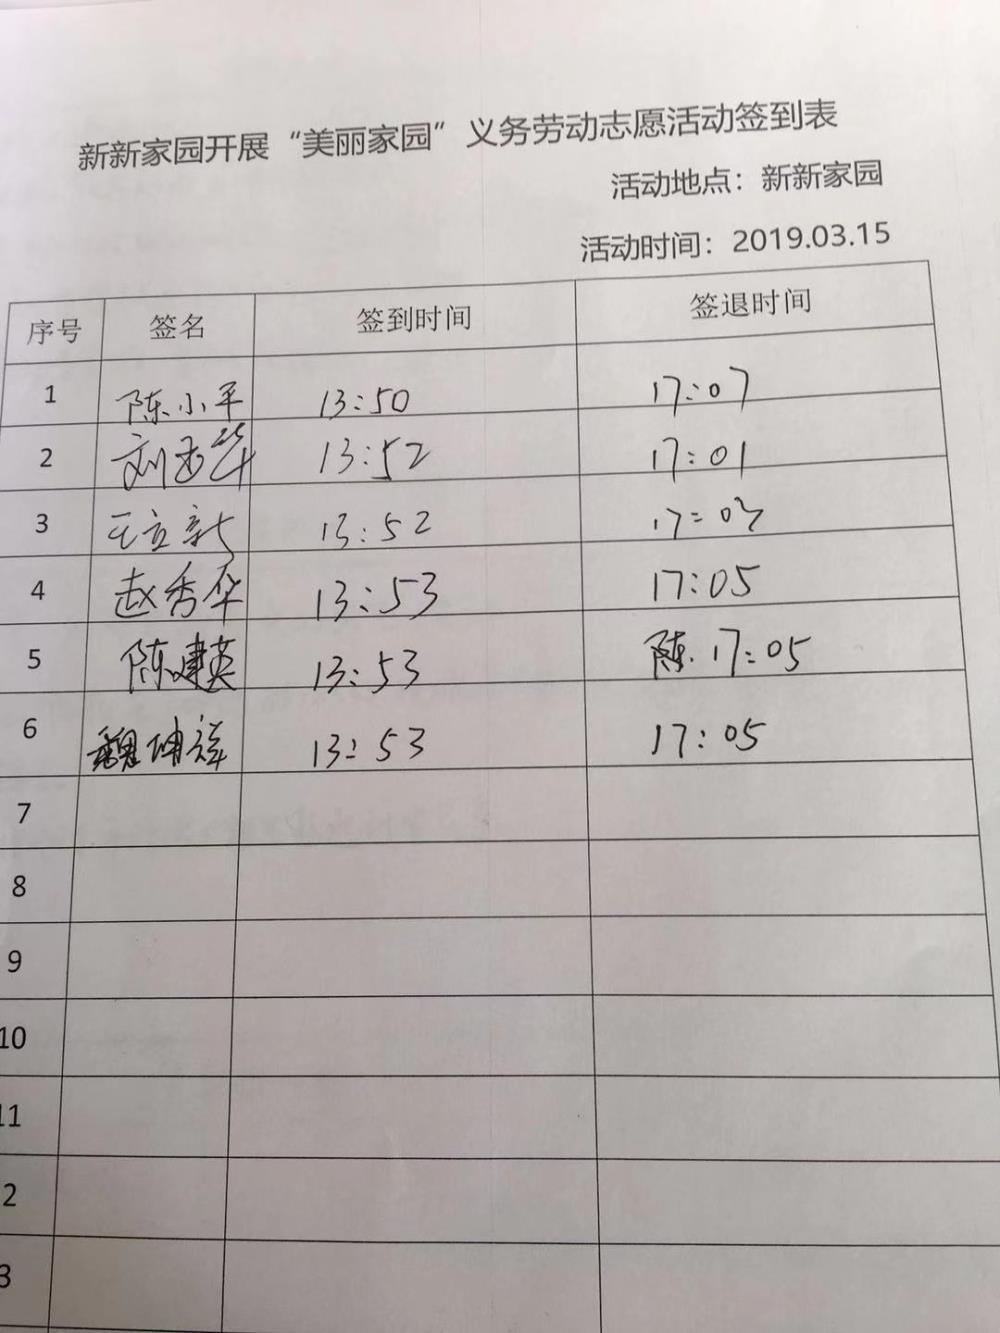 新新家园开展“美丽家园”义务劳动志愿活动签到表
活动地点：新新家园
活动时间：2019.03.15
序号 签名 签到时间 签退时间
1 陈小平 13:50 17:07
2 刘玉华 13:52 17:01
3 王立新 13:52 17:03
4 赵秀华 13:53 17:05
5 陈建英 13:53 陈. 17:05
6 魏坤祥 13:53 17:05
7
8
9
10
11
2
3